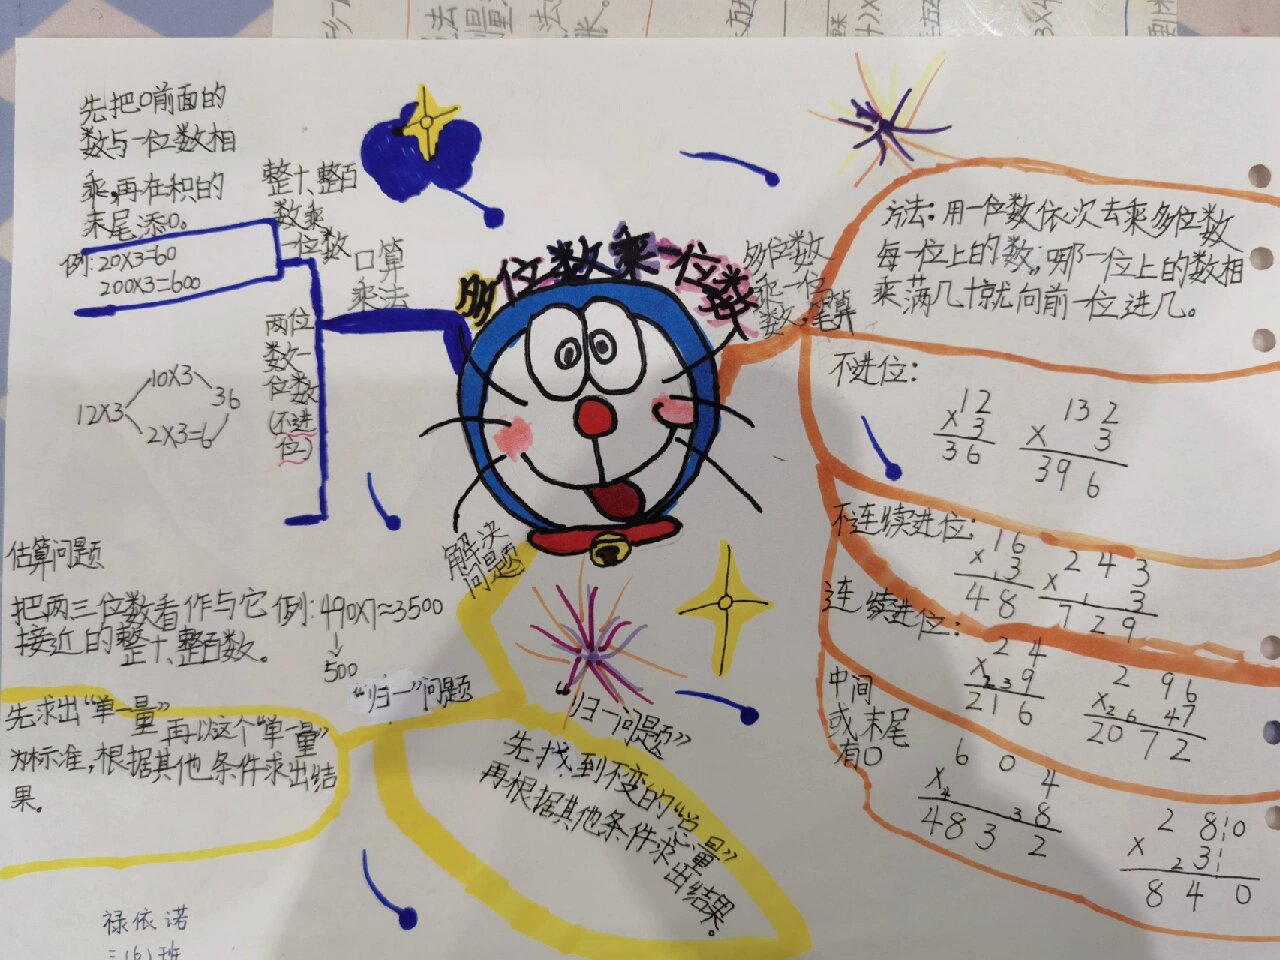 多位数乘一位数
先把0前面的
数与一位数相
乘,再在积的
末尾添0。
例:20X3=60
200X3=600
整十、整百
数乘
一位数
口算
乘法
两位
数一
位数
(不进
位)
12X3
10X3
2X3=6
36
多位数
乘一位
数,笔算
方法:用一位数依次去乘多位数
每一位上的数,哪一位上的数相
乘满几十就向前一位进几。
不进位:
12
X 3
36
132
X 3
396
不连续进位:
16
X 3
48
243
X 1 3
729
连续进位:
24
X 2 3 9
216
296
X 2 6 47
2072
中间
或末尾
有0
604
X 4 3 8
4832
280
X 2 3
840
解决
问题
估算问题
把两三位数看作与它
接近的整十、整百数。
例:490X7≈3500
500
"归一"问题
先求出"单一量"
再以这个"单一量"
为标准,根据其他条件求出结
果。
"归一问题"
先找到不变的"总量"
再根据其他条件求出结果。
禄依诺
三(6)班